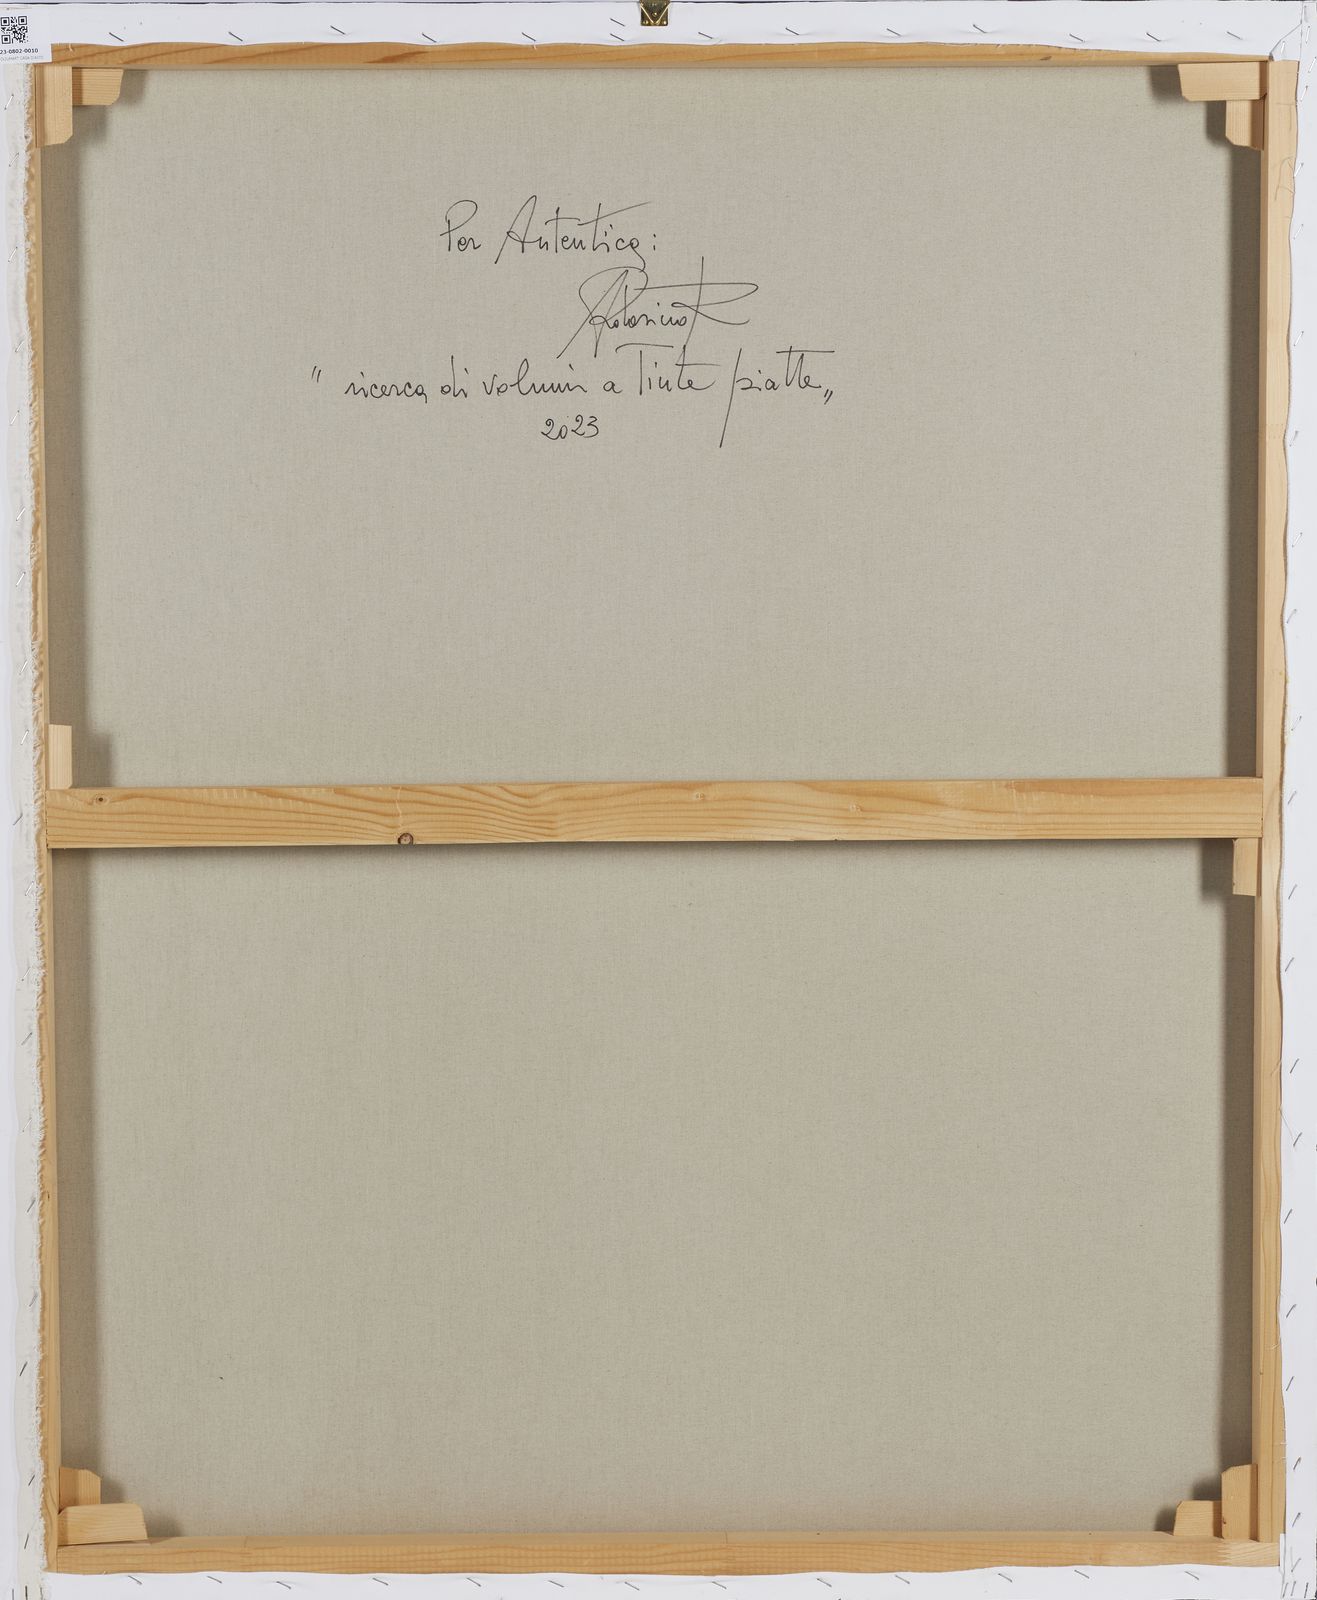 23-0802-0010
Per Autentica:
" ricerca di volumi a Tinte piatte „
2023